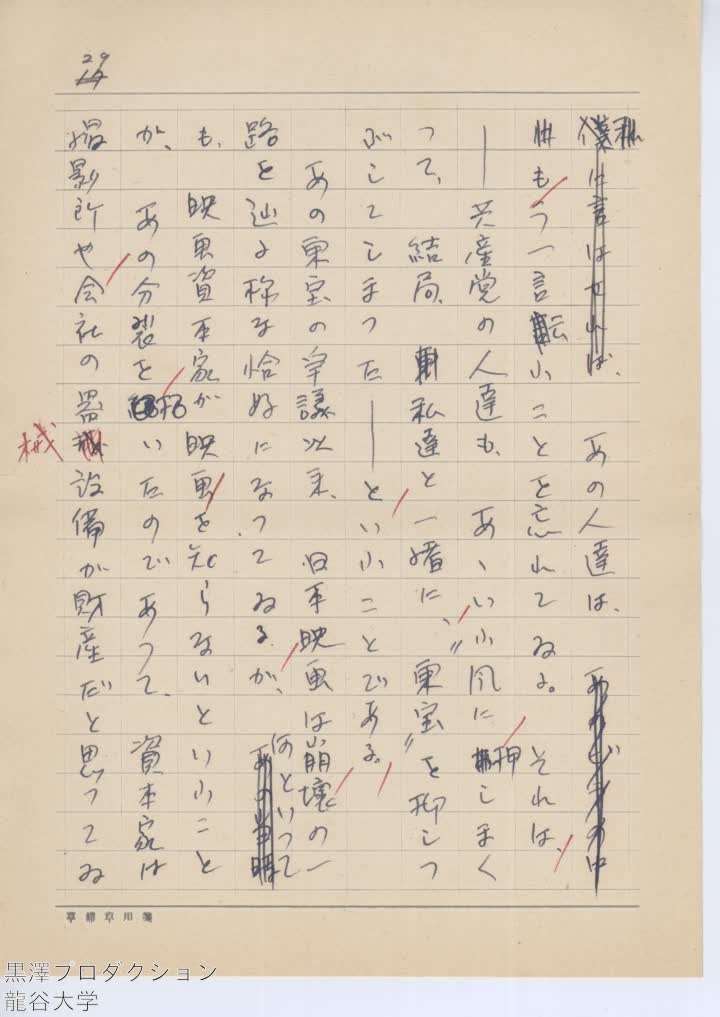 29
私に言はせれば、あの人達は、
もう一言云ふことを忘れてゐる。それは、
―共産党の人達も、あゝいふ風に押しまく
って、結局、私達と一緒に、〝東宝〟を押しつ
ぶしてしまつた――といふことである。
あの東宝の争議以来、日本映画は崩壊の一
路を辿る様な恰好になつてゐるが、何といつて
も、映画資本家が映画を知らないといふこと
が、あの分裂を招いたのであつて、資本家は
撮影所や会社の器械設備が財産だと思つてゐ
黒澤プロダクション
龍谷大学